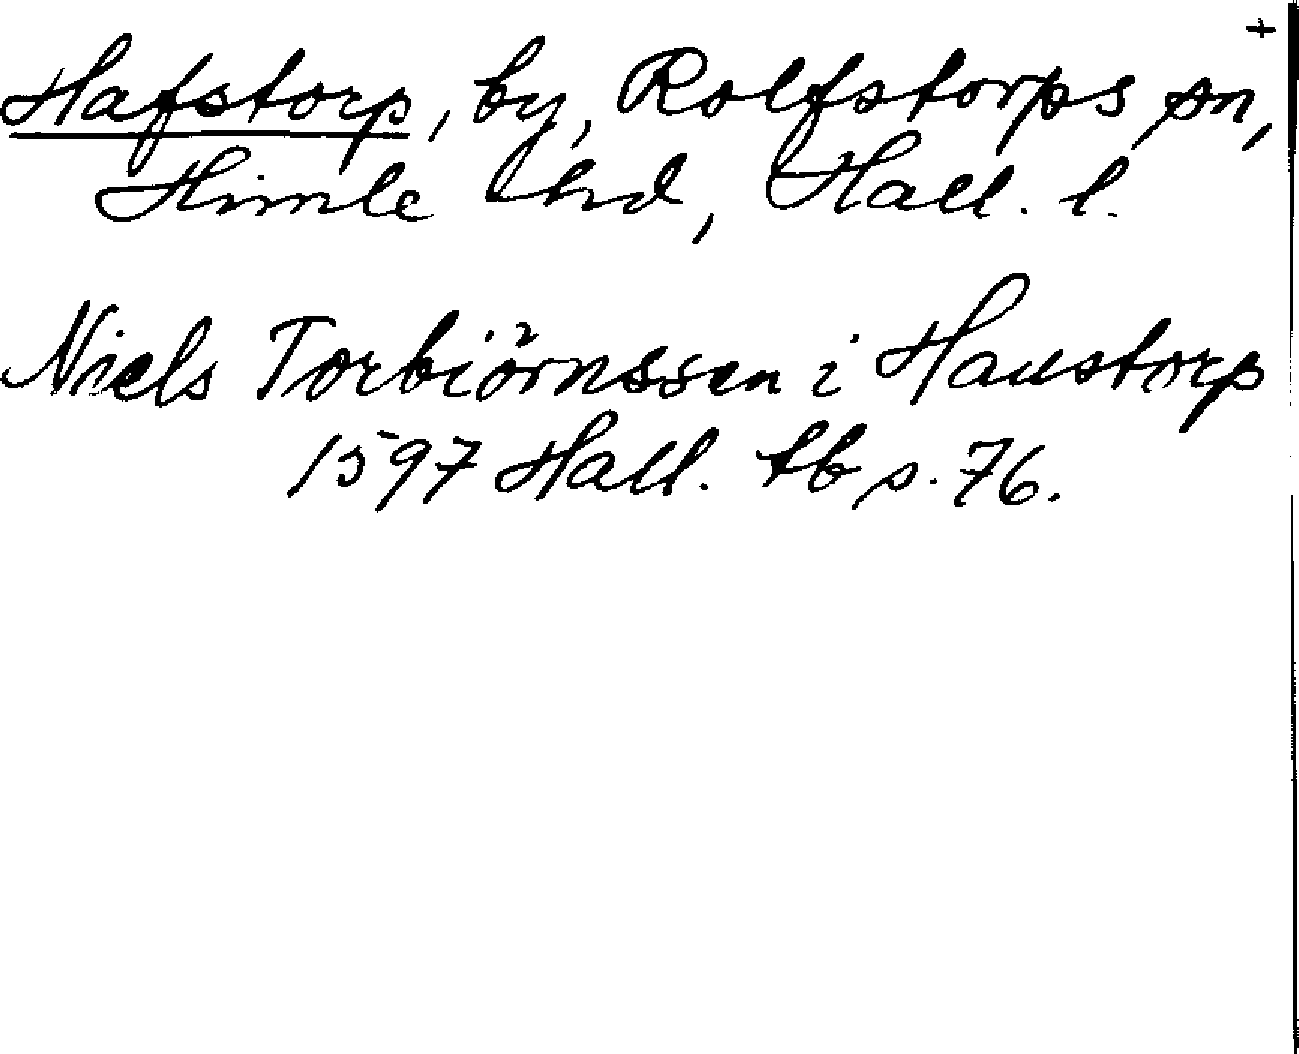 +
Hafstorp, by, Rolfstorps sn,
Himle hd, Hall. l.
Niels Torbiörnssen i Haustorp
1597 Hall. tb s. 76.